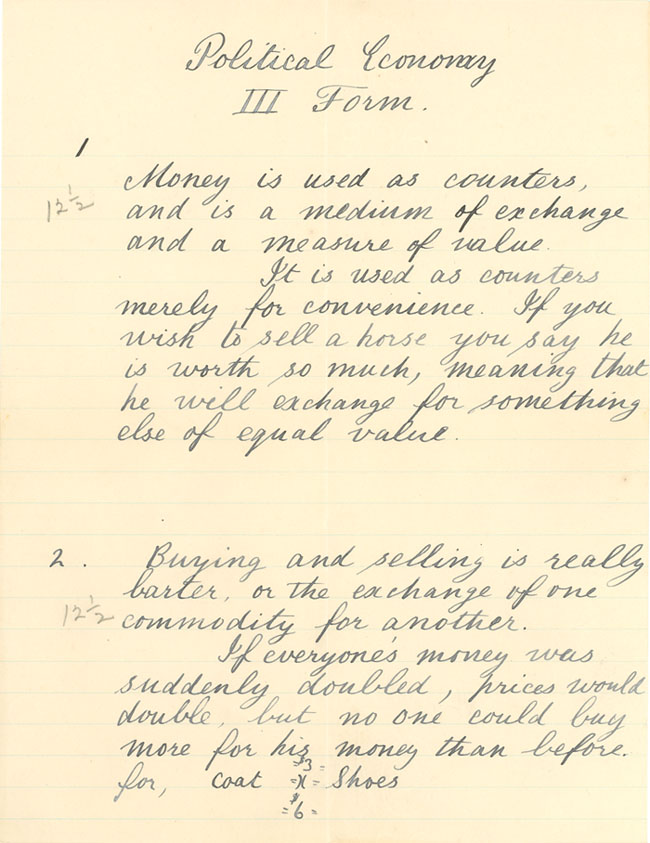 Political Economy
III Form.
1
Money is used as counters,
12½
and is a medium of exchange
and a measure of value.
It is used as counters
merely for convenience. If you
wish to sell a horse you say he
is worth so much, meaning that
he will exchange for something
else of equal value.
2. Buying and selling is really
barter, or the exchange of one
12½
commodity for another.
If everyone's money was
suddenly doubled, prices would
double, but no one could buy
more for his money than before.
$3 =
for, coat = = Shoes
= $6 =